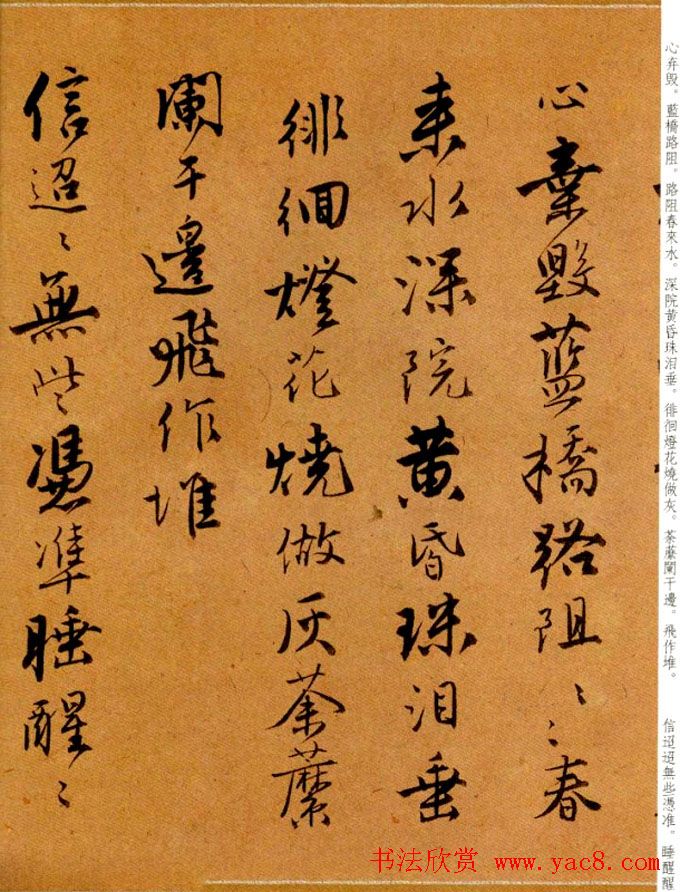 心弃毁。藍橋路阻。路阻春來水。深院黄昏珠泪垂。徘徊燈花燒做灰。荼蘼闌干邊。飛作堆。 信迢迢無些憑准。睡醒醒
心棄毀藍橋路阻〻〻春
來水深院黄昏珠泪垂
徘徊燈花燒做灰荼蘼
闌干邊飛作堆
信迢〻無些憑準睡醒〻
书法欣赏 www.yac8.com